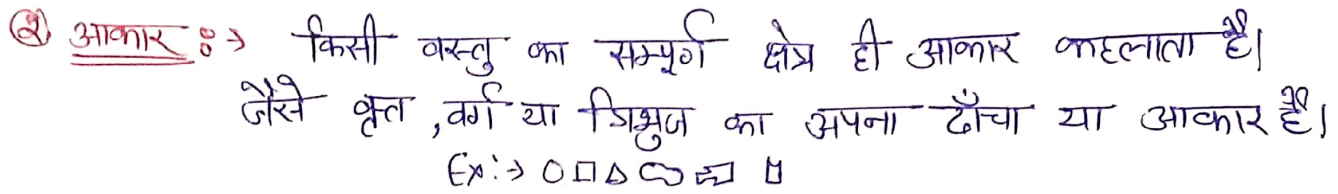 ② आकार :→ किसी वस्तु का सम्पूर्ण क्षेत्र ही आकार कहलाता है।
जैसे वृत्त, वर्ग या त्रिभुज का अपना ढाँचा या आकार है।
Ex:→